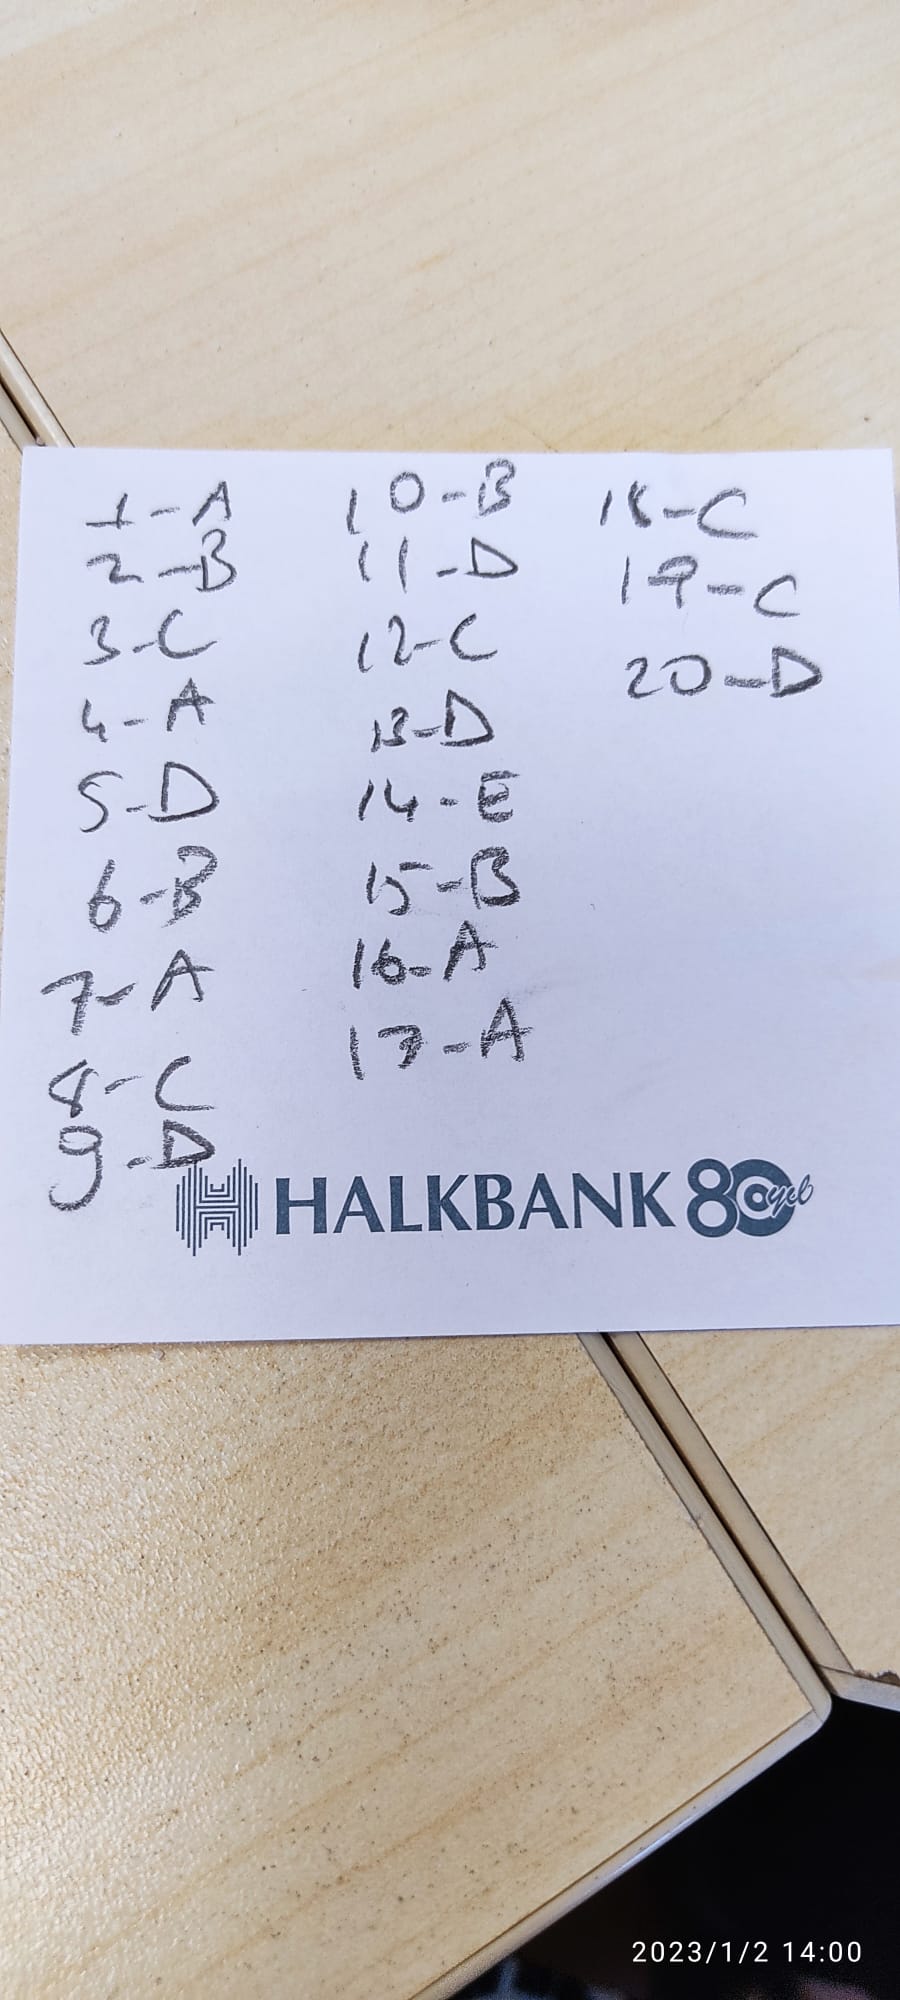 1-A
2-B
3-C
4-A
5-D
6-B
7-A
8-C
9-D
10-B
11-D
12-C
13-D
14-E
15-B
16-A
17-A
18-C
19-C
20-D
HALKBANK 80 yıl
2023/1/2 14:00